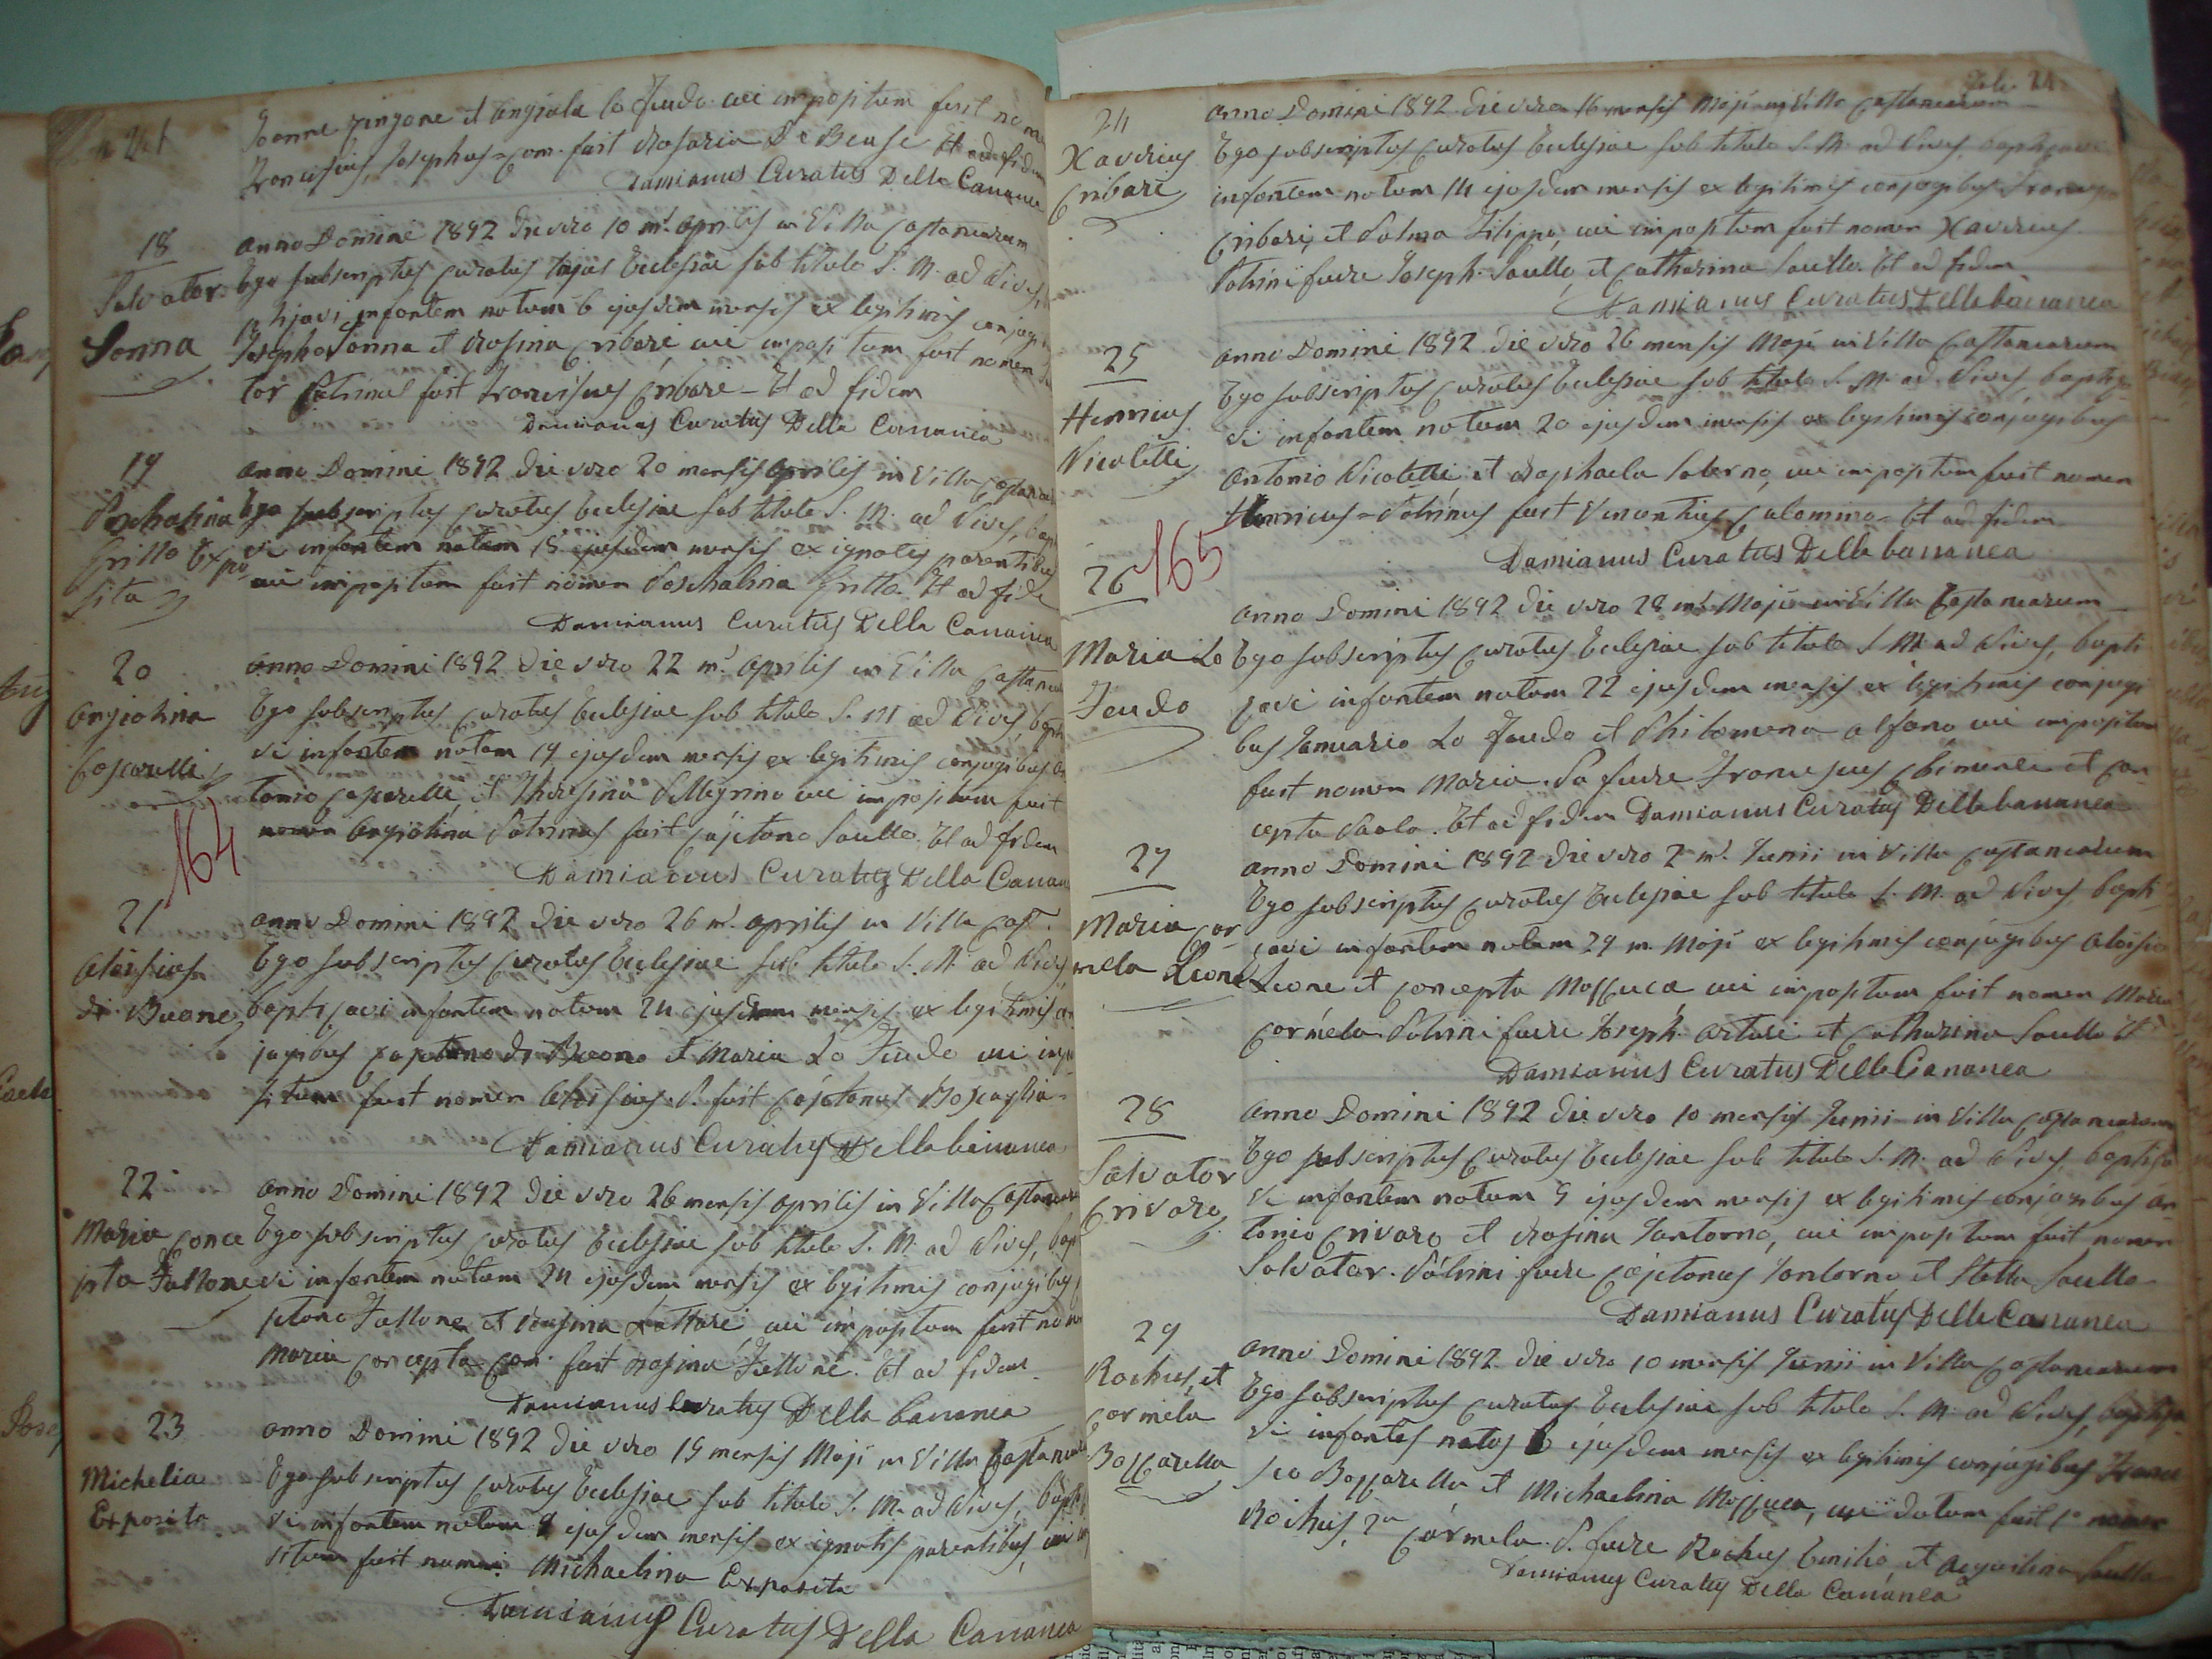 Joanne Zingone et Angiola lo Feudo cui impositum fuit
Franciscus, Josephus = Com. fuit Rosaria De Bense Et ad fidem
Damianus Curatus Della Cananea
18
Salvator
Sonna
Anno Domini 1892 Die vero 10 m.s Aprilis in Villa Castanearum
Ego subscriptus Curatus hujus Eclesiae sub titulo S. M. ad Nives
infantem natum 6 ejusdem mensis ex legitimis
Josepho Sonna et Rosina Cribari, cui impositum fuit nomen
tor Patrinus fuit Franciscus Cribari = Et ad fidem
Damianus Curatus Della Cananea
19
Paschalina
Gritta Expo
sita
Anno Domini 1892 Die vero 20 mensis Aprilis in Villa
Ego subscriptus Curatus Eclesiae sub titulo S. M. ad Nives,
vi infantem natam 15 ejusdem mensis ex ignotis parentibus
cui impositum fuit nomen Paschalina Gritta. Et ad fide
Damianus Curatus Della Cananea
20
Angiolina
Cascarelli
164
Anno Domini 1892 Die vero 22 m.s Aprilis in Villa
Ego subscriptus Curatus Eclesiae sub titulo S. M ad Nives,
vi infantem natam 19 ejusdem mensis ex legitimis conjugibus An
tonio et Theresina Pellegrino cui impositum fuit
nomen Angiolina Patrinus fuit Cajetano Saullo. Et ad fidem
Damianus Curatus Della Canan
21
Aloisius
di Buono
Anno Domini 1892 Die vero 26 m.s Aprilis in Villa Cast.
Ego subscriptus Curatus Eclesiae sub titulo S. M. ad Nives
baptizavi infantem natum 24 ejusdem mensis ex legitimis
jugibus Cajetano di Buono et Maria Lo Feudo cui impo
situm fuit nomen Aloisius. P. fuit Cajetanus Boscaglia =
Damianus Curatus Della Cananea
22
Maria Conce
pta Fallone
Anno Domini 1892 Die vero 26 mensis Aprilis in Villa Castanearum
Ego subscriptus Curatus Eclesiae sub titulo S. M. ad Nives,
vi infantem natam 24 ejusdem mensis ex legitimis conjugibus
jetano Fallone et Rosina cui impositum fuit nomen
Maria Concepta Com. fuit Rosina Fallone. Et ad fidem
Damianus Curatus Della Cananea
23
Michelia
Exposita
Anno Domini 1892 Die vero 15 mensis Maji in Villa
Ego subscriptus Curatus Eclesiae sub titulo S. M. ad Nives,
vi infantem natam ejusdem mensis ex ignotis parentibus, cui
situm fuit nomen Michaelina Exposita
Damianus Curatus Della Cananea
24
Xaverius
Cribari
Anno Domini 1892 Die vero 16 mensis Maji in Villa Castanearum
Ego subscriptus Curatus Eclesiae sub titulo S. M. ad Nives, baptizavi
infantem natum 14 ejusdem mensis ex legitimis conjugibus
Cribari, et Palma Filippo, cui impositum fuit nomen Xaverius
Patrini fuere Joseph Saullo, et Catharina Saullo. Et ad fidem
Damianus Curatus Della Cananea
25
Henricus
Nicoletti
Anno Domini 1892 Die vero 26 mensis Maji in Villa Castanearum
Ego subscriptus Curatus Eclesiae sub titulo S. M. ad Nives, baptiza
vi infantem natum 20 ejusdem mensis ex legitimis conjugibus
Antonio Nicoletti et Raphaela Salerno, cui impositum fuit nomen
Henricus = Patrinus fuit Vincentius Calomino = Et ad fidem
Damianus Curatus Della Cananea
165
26
Maria Lo
Feudo
Anno Domini 1892 Die vero 28 m.s Maji in Villa Castanearum
Ego subscriptus Curatus Eclesiae sub titulo S. M. ad Nives, bapti
zavi infantem natam 22 ejusdem mensis ex legitimis conjugi
bus Januario Lo Feudo et Philomena Alfano cui impositum
fuit nomen Maria. Pa fuere Franciscus Chimenti et Con
cepta Paola. Et ad fidem Damianus Curatus Della Cananea
27
Maria Car
mela Leone
Anno Domini 1892 Die vero 2 m.s Junii in Villa Castanearum
Ego subscriptus Curatus Eclesiae sub titulo S. M. ad Nives, bapti
zavi infantem natam 29 m. Maji ex legitimis conjugibus Aloisio
Leone et Concepta Mazzuca, cui impositum fuit nomen Maria
Carmela. Patrini fuere Joseph. et Catharina Saullo Et
Damianus Curatus Della Cananea
28
Salvator
Crivaro
Anno Domini 1892 Die vero 10 mensis Junii in Villa Castanearum
Ego subscriptus Curatus Eclesiae sub titulo S. M. ad Nives, baptiza
vi infantem natum 9 ejusdem mensis ex legitimis conjugibus An
tonio Crivaro et Rosina Santorno, cui impositum fuit nomen
Salvator. Patrini fuere Cajetanus Santorno et Stella Saullo
Damianus Curatus Della Cananea
29
Rochus, et
Carmela
Bozzarella
Anno Domini 1892 Die vero 10 mensis Junii in Villa Castanearum
Ego subscriptus Curatus Eclesiae sub titulo S. M. ad Nives, baptiza
vi infantes natos ejusdem mensis ex legitimis conjugibus Franci
sco Bozzarella et Michaelina Mazzuca, cui datum fuit 1° nomen
Rochus, 2a Carmela. P. fuere Rochus et Saullo
Damianus Curatus Della Cananea